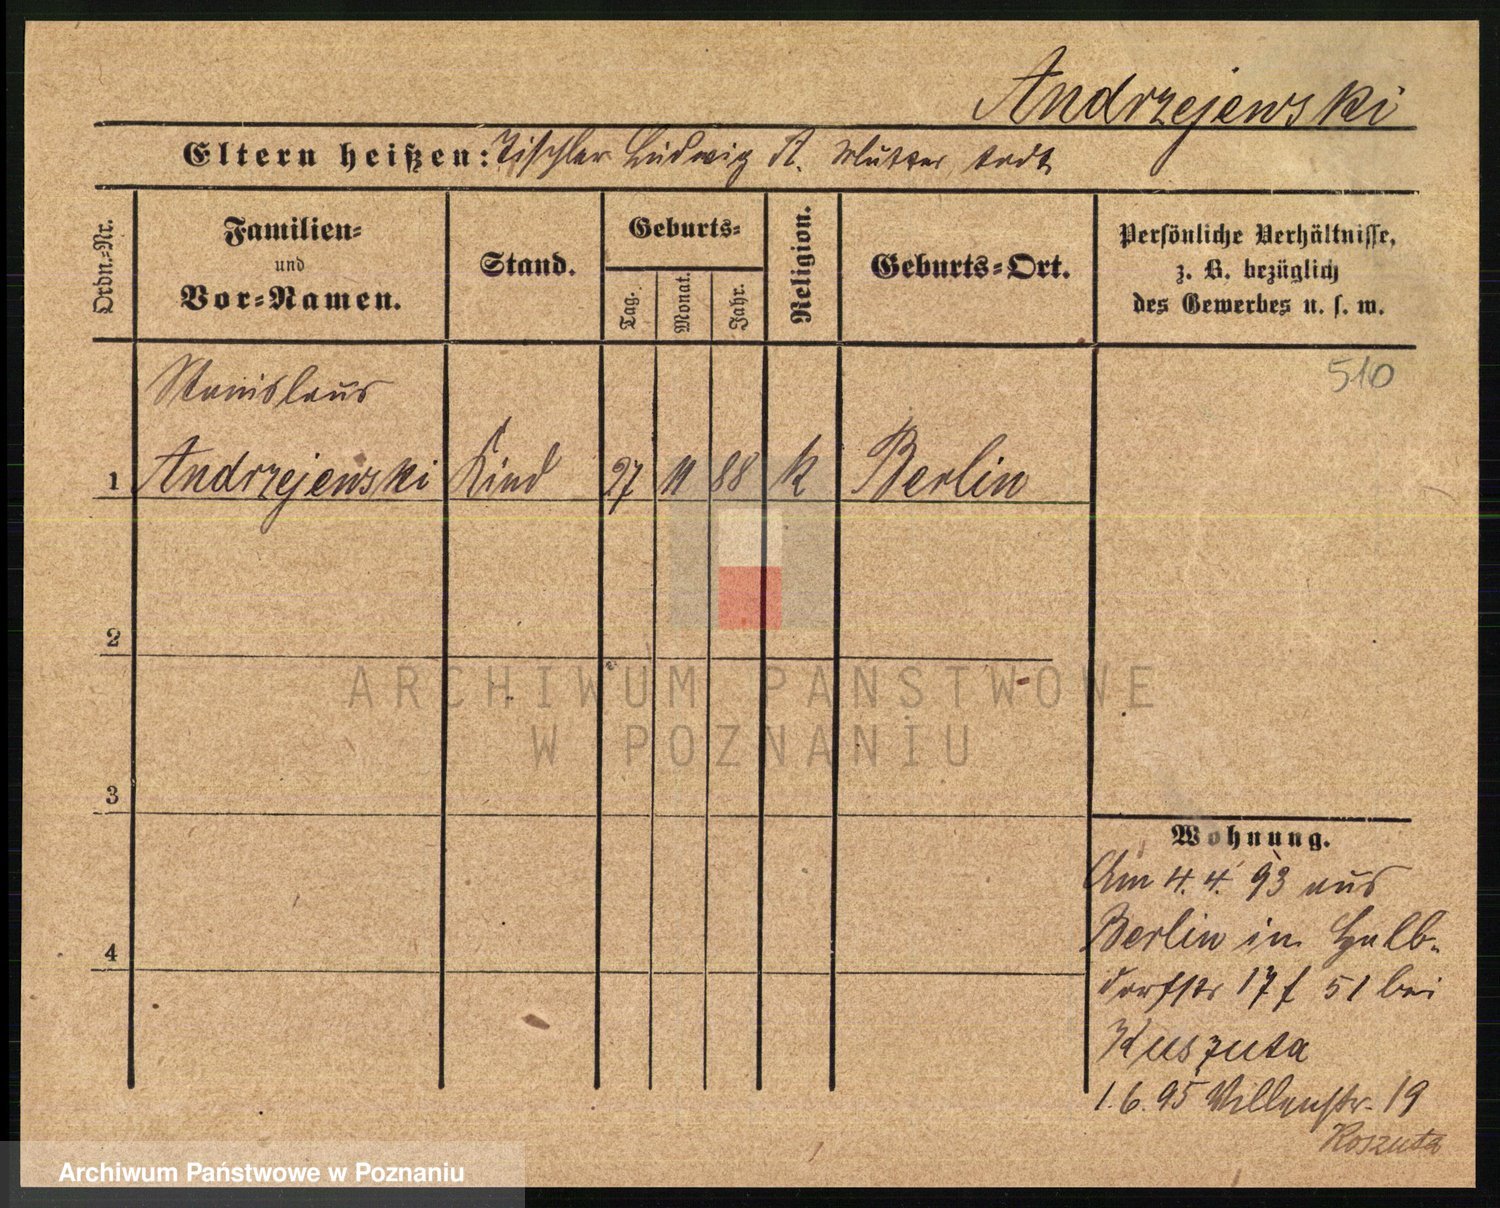 Andrzejewski
Eltern heißen: Tischler Ludwig A. Mutter todt
Ordn.-Nr.
Familien-
und
Vor-Namen.
Stand.
Geburts-
Tag.
Monat.
Jahr.
Religion.
Geburts-Ort.
Persönliche Verhältnisse,
z. B. bezüglich
des Gewerbes u. s. w.
510
Stanislaus
1 Andrzejewski Kind 27 11 88 k Berlin
2
3
4
ARCHIWUM PAŃSTWOWE
W POZNANIU
Wohnung.
Am 4. 4. 93 aus
Berlin in Halb-
dorfstr 17 f 51 bei
Kuszuta
1.6.95 Willenstr. 19
Koszuta
Archiwum Państwowe w Poznaniu